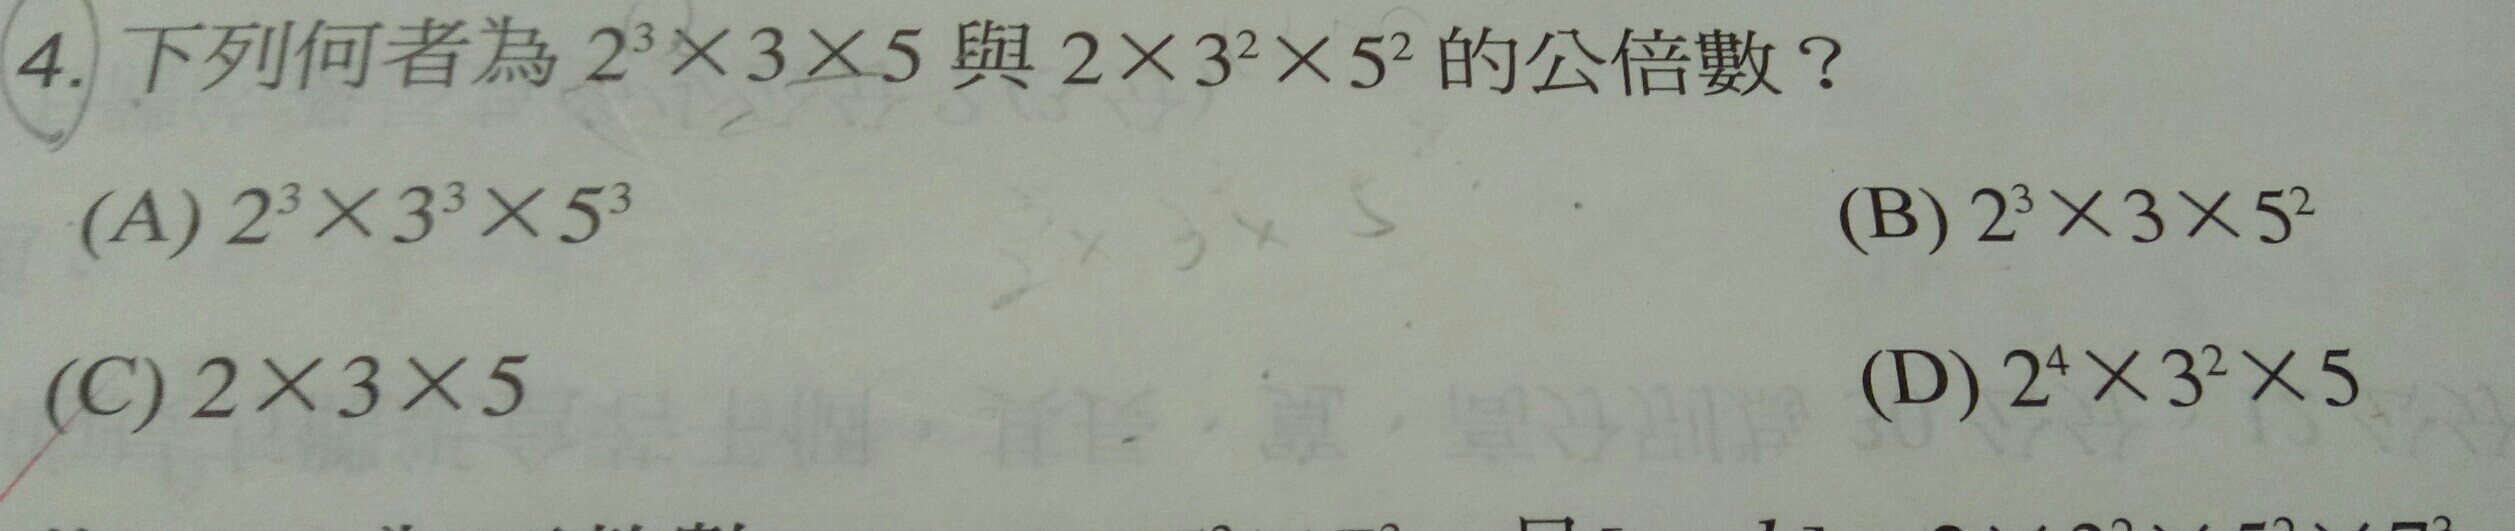 4. 下列何者為 2³×3×5 與 2×3²×5² 的公倍數？
(A) 2³×3³×5³ (B) 2³×3×5²
(C) 2×3×5 (D) 2⁴×3²×5